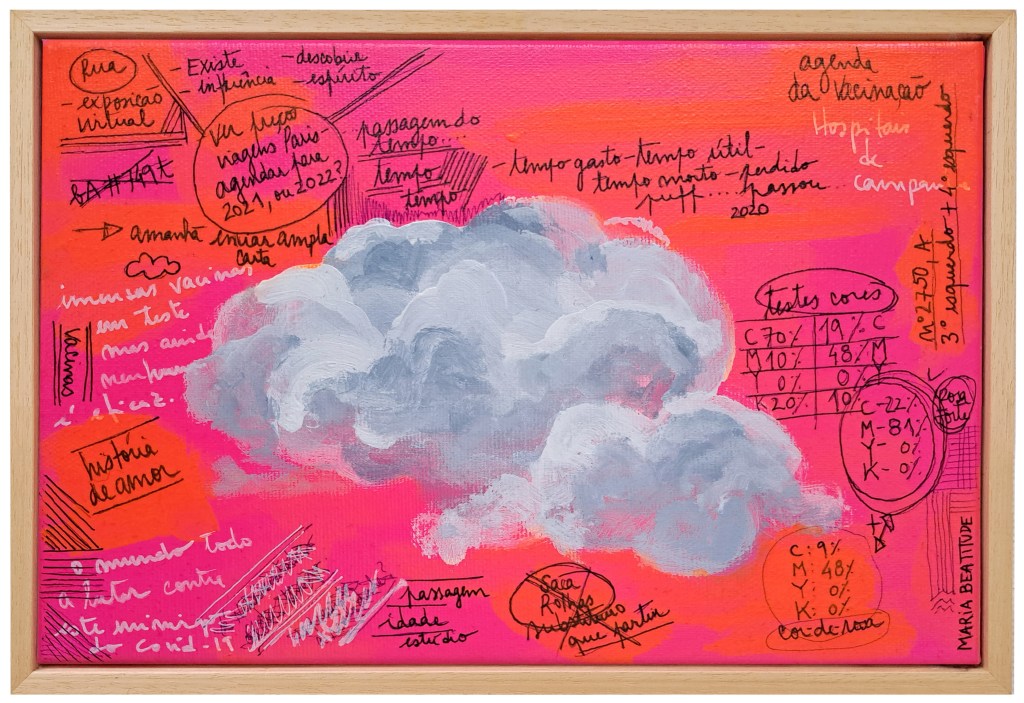 Rua
- exposição
virtual
- Existe
influência
- descobrir
- espírito
Ver preço
viagens Paris -
agendar para
2021, ou 2022?
passagem do
tempo....
tempo
tempo
- tempo gasto - tempo útil -
tempo morto - perdido
puff .... passou ...
2020
agenda
da Vacinação
Hospitais
de
campan
Nº 2750, A
3º esquerdo + 4º esquerdo
amanhã enviar ampla
carta
imensas vacinas
em teste
mas ainda
nenhuma
é eficaz.
Vacinas
história
de amor
testes cores
C 70% 19% C
M 10% 48% M
Y 0% 0%
K 20% 10%
rosa
forte
C - 22%
M - 81%
Y - 0%
K - 0%
C: 9%
M: 48%
Y: 0%
K: 0%
cor-de-rosa
o mundo todo
a lutar contra
este inimigo
do Covid-19
passagem
idade
estúdio
Saca
Rolhas
substituiro
que partiu
MARIA BEATITUDE